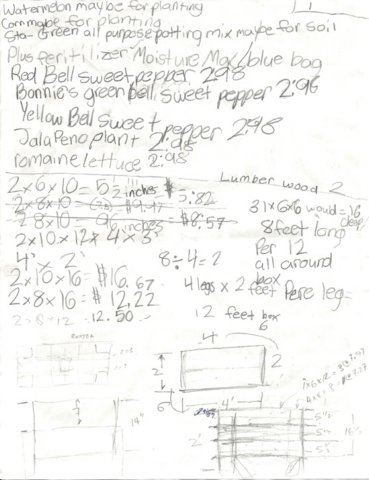 Watermelon maybe for planting 1
Corn maybe for planting
Sta-Green all purpose potting mix maybe for soil
Plus feritilizer Moisture Max blue bag
Red Bell sweet pepper 2.98
Bonnie's green bell sweet pepper 2.96
Yellow Bell sweet pepper 2.98
JalaPeno plant 2.98
romaine lettuce 2.98
Lumber wood 2
2x6x10 = 5 1/2 inches $5.82
2x8x10 $9.47
2x8x10 inches $8.57
2x10x12x4x3'
31x6x6 would = 16 deep
8 feet long
Per 12
all around
box
4' x 2'
8÷4=2
2x10x16=$16.67
2x8x16=$12,22
4 legs x 2 feet Pere leg=
2x8x12 12.50
12 feet box
6
4
2'
2
6
4'
14"
2'
5 1/2
5 1/2
5 1/2
16 1/2